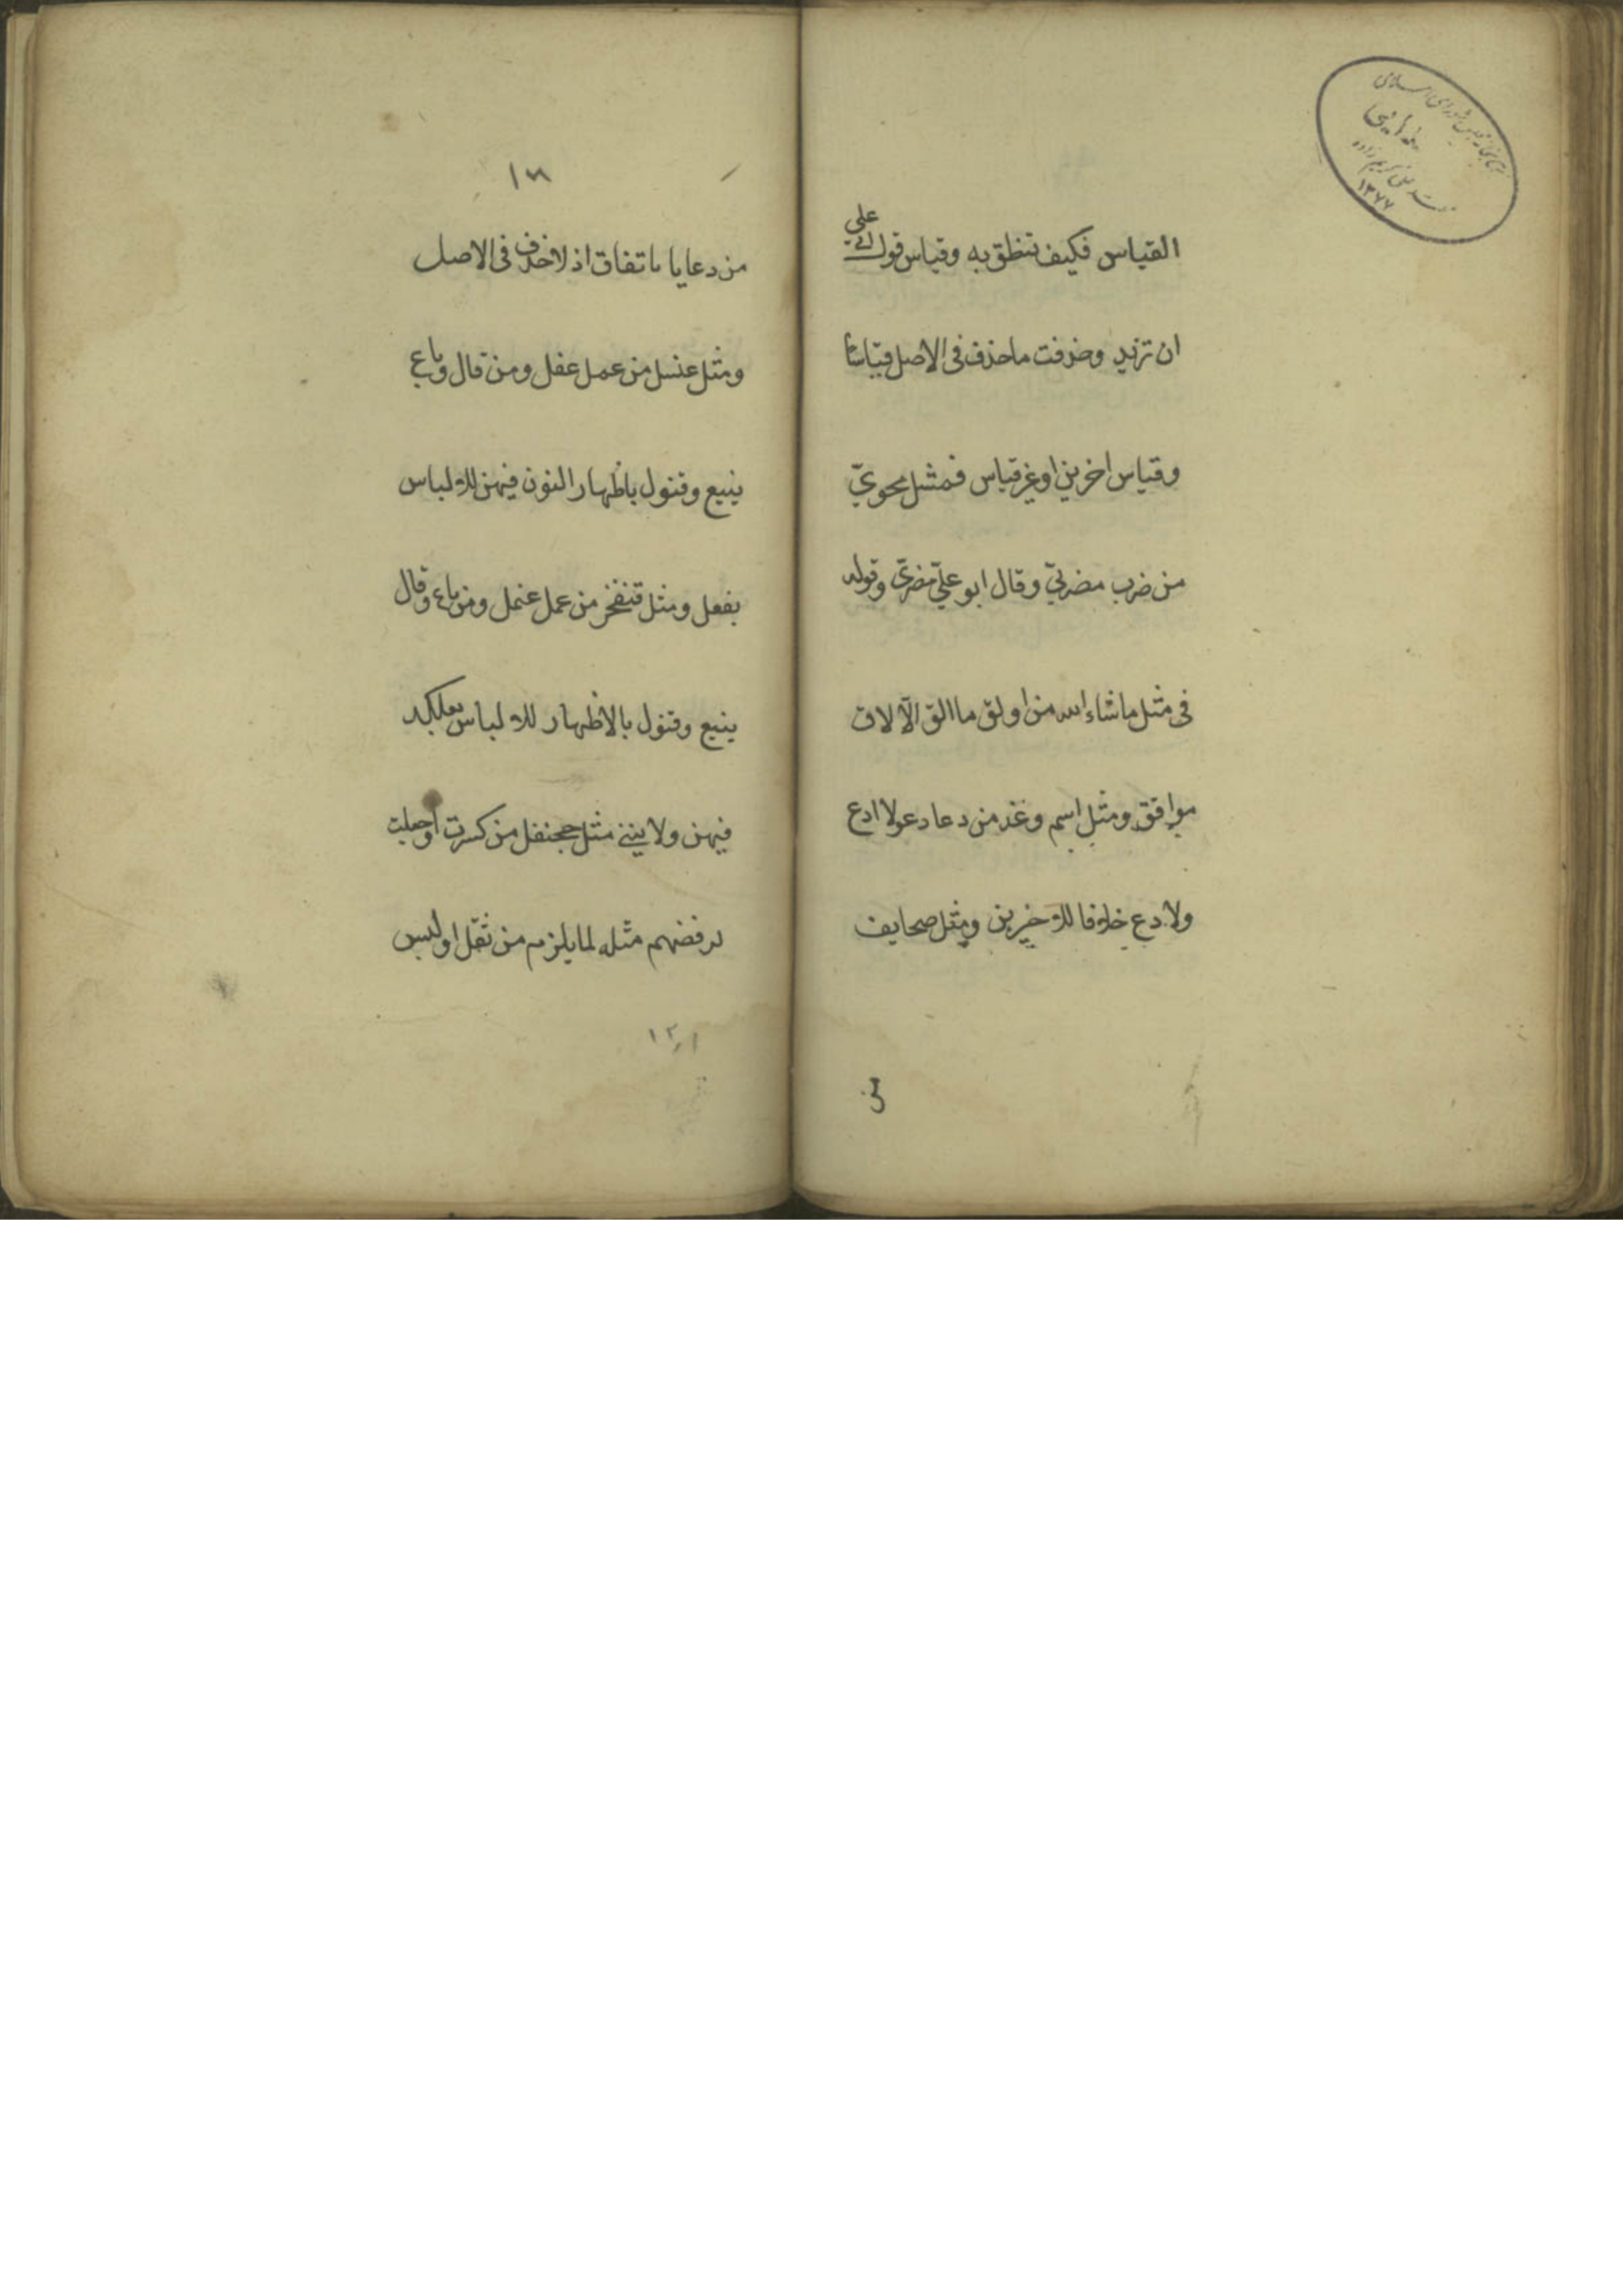 القياس فكيف تنطق به وقياس قول ابى على
ان تزيد وحذفت ما حذف فى الاصل قياسا
وقياس اخرين او غير قياس فمثل محوىّ
من ضرب مضربىّ وقال ابو علىّ مضرىّ وقوله
فى مثل ماشاء الله من اولق ما الق الآلاق
موافق ومثل اسم وغد من دعا دعو لا ادع
ولا دع خلافا للآخيرين ومثل صحايف
من
من دعايا باتفاق اذ لا حذف فى الاصل
ومثل عنسل من عمل عنمل ومن قال وباع
بنيع وقنول باظهار النون فيهن للالباس
بفعل ومثل قنفخر من عمل عنمل ومن باع وقال
بنيع وقنول بالاظهار للالباس بعلكد
فيهن ولا يبنى مثل جحنفل من كسرت او جعلت
لرفضهم مثله لما يلزم من ثقل او لبس
١٣٧٧